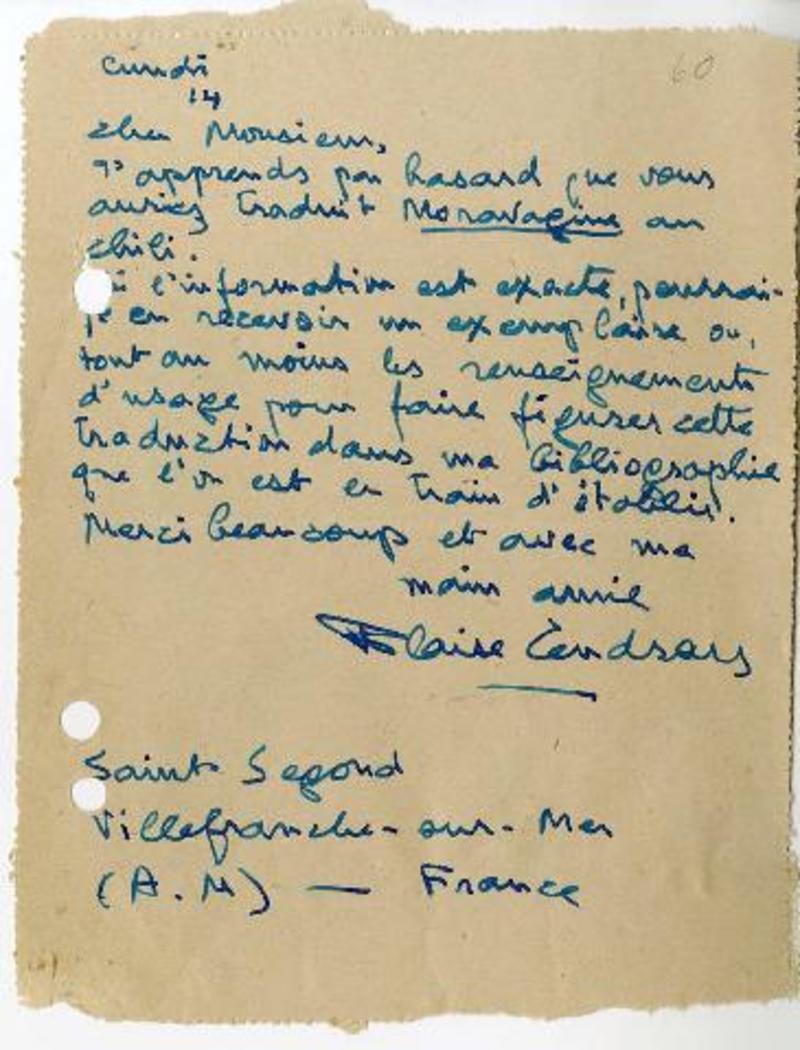 Lundi
60
14
cher Monsieur,
J'apprends par hasard que vous
auriez traduit Moravagine au
chili.
Si l'information est exacte, pourrai-
je en recevoir un exemplaire ou,
tout au moins les renseignements
d'usage pour faire figurer cette
traduction dans ma bibliographie
que l'on est en train d'établir.
Merci beaucoup et avec ma
main amie
Blaise Cendrars
Saint-Segond
Villefranche-sur-Mer
(A.M) — France